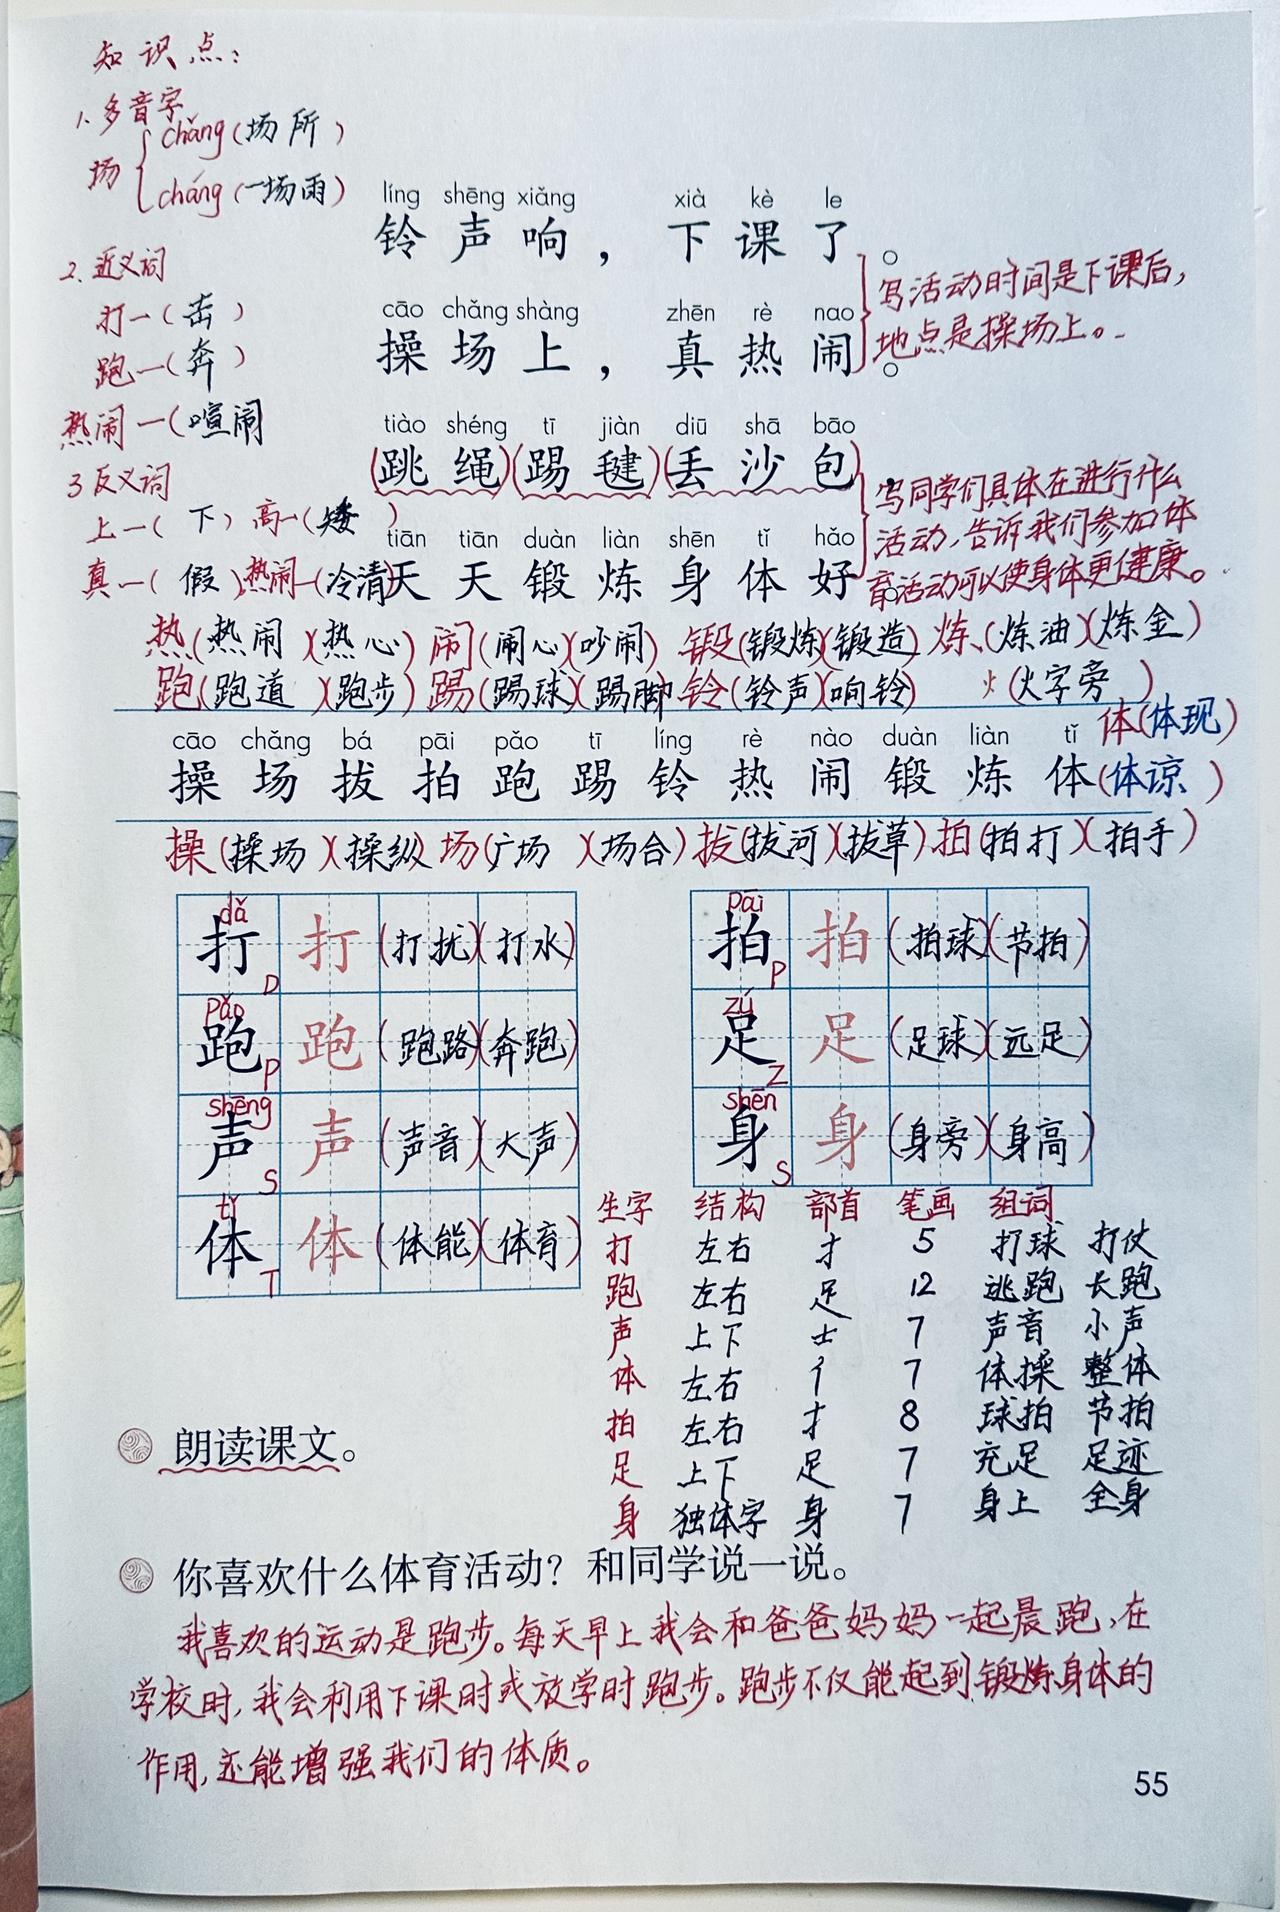 知识点：
1、多音字
场 chǎng（场所）
cháng（一场雨）
líng shēng xiǎng xià kè le
铃声响，下课了。
2、近义词
写活动时间是下课后，
地点是操场上。
打一（击）
cāo chǎng shàng zhēn rè nao
操场上，真热闹。
跑一（奔）
热闹一（喧闹
tiào shéng tī jiàn diū shā bāo
(跳绳)(踢毽)(丢沙包)
3 反义词
写同学们具体在进行什么
活动，告诉我们参加体
育活动可以使身体更健康。
上一（下）高一（矮）
tiān tiān duàn liàn shēn tǐ hǎo
真一（假）热闹一（冷清）
天天锻炼身体好。
热（热闹）（热心）闹（闹心）（吵闹）锻（锻炼）（锻造）炼（炼油）（炼金）
跑（跑道）（跑步）踢（踢球）（踢脚 铃（铃声）（响铃） 火（火字旁）
体（体现）
cāo chǎng bá pāi pǎo tī líng rè nào duàn liàn tǐ
操场拔拍跑踢铃热闹锻炼体（体谅）
操（操场）（操纵）场（广场）（场合）拔（拔河）（拔草）拍（拍打）（拍手）
dǎ
打 D 打（打扰）（打水）
pāi
拍 P 拍（拍球）（节拍）
pǎo
跑 P 跑（跑路）（奔跑）
zú
足 Z 足（足球）（远足）
shēng
声 S 声（声音）（大声）
shēn
身 S 身（身旁）（身高）
tǐ
体 T 体（体能）（体育）
生字 结构 部首 笔画 组词
打 左右 扌 5 打球 打仗
跑 左右 足 12 逃跑 长跑
声 上下 士 7 声音 小声
体 左右 亻 7 体操 整体
拍 左右 扌 8 球拍 节拍
足 上下 足 7 充足 足迹
身 独体字 身 7 身上 全身
朗读课文。
你喜欢什么体育活动？和同学说一说。
我喜欢的运动是跑步。每天早上我会和爸爸妈妈一起晨跑，在
学校时，我会利用下课时或放学时跑步。跑步不仅能起到锻炼身体的
作用，还能增强我们的体质。
55